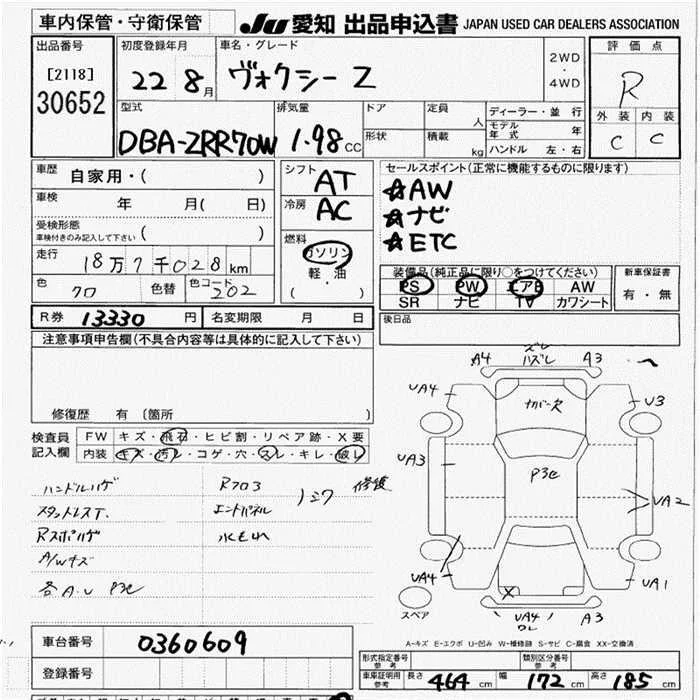 車内保管・守衛保管 JU 愛知 出品申込書 JAPAN USED CAR DEALERS ASSOCIATION
出品番号 初度登録年月 車名・グレード 2WD・4WD 評価点
[2118] 22 8月 ヴォクシー Z R
30652
型式 排気量 ドア 定員 人 ディーラー・並 行 外装 内装
DBA-ZRR70W 1.98 CC 形状 積載 kg モデル年式 年 C C
ハンドル 左・右
車歴 自家用・( ) シフト AT セールスポイント(正常に機能するものに限ります)
車検 年 月( 日) 冷房 AC ☆AW
受検形態 車検付きのみ記入して下さい ( ) ☆ナビ
燃料 ガソリン ☆ETC
走行 18万7千028km 軽・油
( )
装備品(純正品に限り○をつけてください) 新車保証書
色 クロ 色替 色コード 202 PS PW エアB AW 有・無
SR ナビ TV カワシート
R券 13330円 名変期限 月 日 後日品
注意事項申告欄(不具合内容等は具体的に記入して下さい)
修復歴 有 (箇所 )
検査員記入欄 FW キズ・飛石・ヒビ割・リペア跡・X要
内装 キズ・汚レ・コゲ・穴・スレ・キレ・破レ
ハンドルハゲ Rフロ3
スタットレスT. エンドパネル
Rスポハゲ 水もれ
A/Wキズ
各A.U P3e
修復
ズレ
ハズレ
A4 A3
UA4 U3
UA3 P3e UA2
UA4 UA1
X
スペア UA4 A3
A-キズ E-エクボ U-凹み W-補修跡 S-サビ C-腐食 XX-交換済
車台番号 0360609
登録番号
形式指定番号 参考 類別区分番号 参考
車庫証明用 参考 長さ 464 cm 幅 172 cm 高さ 185 cm